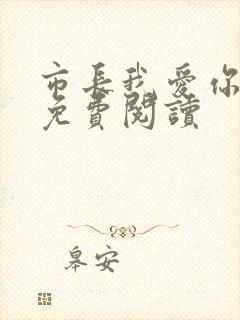 市長我愛你
免費閱讀
皋安